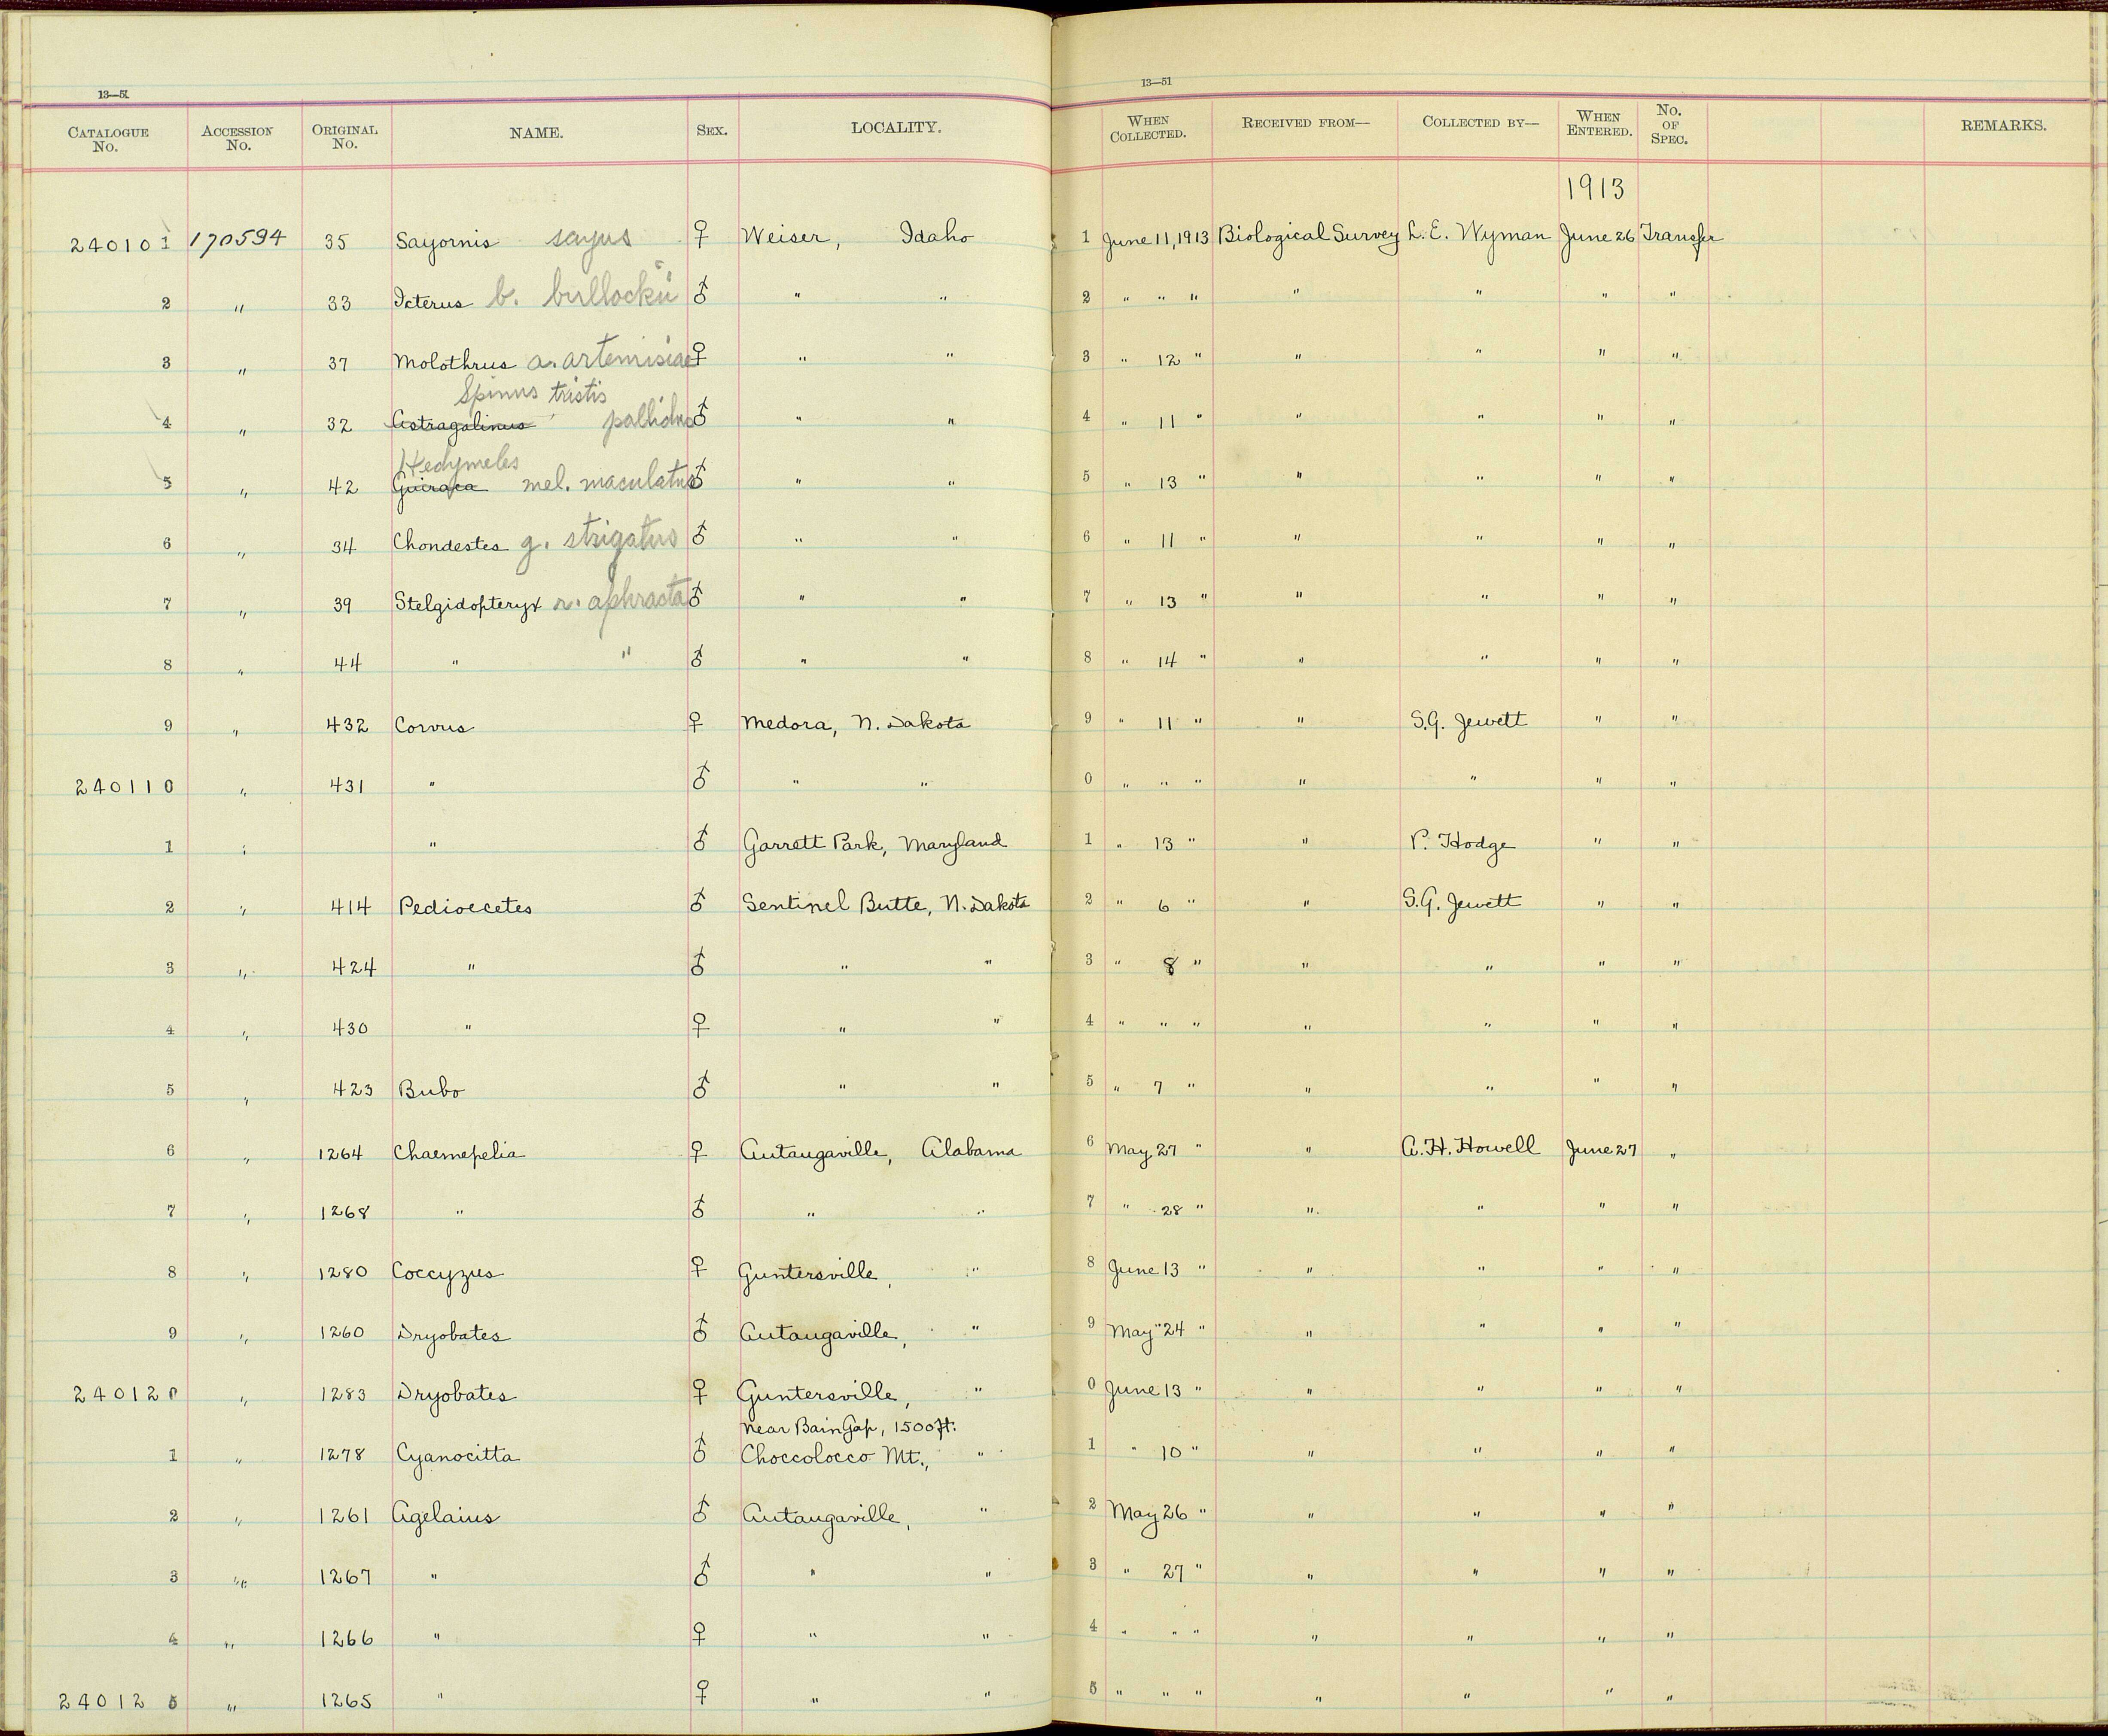 13—51
13—51
CATALOGUE No. ACCESSION No. ORIGINAL No. NAME. SEX. LOCALITY. WHEN COLLECTED. RECEIVED FROM— COLLECTED BY— WHEN ENTERED. No. OF SPEC. REMARKS.
1913
240101 170594 35 Sayornis sayus ♀ Weiser, Idaho 1 June 11, 1913 Biological Survey L. E. Wyman June 26 Transfer
2 " 33 Icterus b. bullockii ♂ " " 2 " " " " " " "
3 " 37 Molothrus a. artemisiae ♀ " " 3 " 12 " " " " "
Spinus tristis
4 " 32 Astragalinus pallidus ♂ " " 4 " 11 " " " " "
Hedymeles
5 " 42 Guiraca mel. maculatus ♂ " " 5 " 13 " " " " "
6 " 34 Chondestes g. strigatus ♂ " " 6 " 11 " " " " "
7 " 39 Stelgidopteryx r. aphracta ♂ " " 7 " 13 " " " " "
8 " 44 " " ♂ " " 8 " 14 " " " " "
9 " 432 Corvus ♀ Medora, N. Dakota 9 " 11 " " S.G. Jewett " "
240110 " 431 " ♂ " " 0 " " " " " " "
1 " " ♂ Garrett Park, Maryland 1 " 13 " " P. Hodge " "
2 " 414 Pedioecetes ♂ Sentinel Butte, N. Dakota 2 " 6 " " S.G. Jewett " "
3 " 424 " ♂ " " 3 " 8 " " " " "
4 " 430 " ♀ " " 4 " " " " " " "
5 " 423 Bubo ♂ " " 5 " 7 " " " " "
6 " 1264 Chaemepelia ♀ Autaugaville, Alabama 6 May 27 " " A. H. Howell June 27 "
7 " 1268 " ♂ " " 7 " 28 " " " " "
8 " 1280 Coccyzus ♀ Guntersville, " 8 June 13 " " " " "
9 " 1260 Dryobates ♂ Autaugaville, " 9 May 24 " " " " "
240120 " 1283 Dryobates ♀ Guntersville, " 0 June 13 " " " " "
near Bain Gap, 1500 ft.
1 " 1278 Cyanocitta ♂ Choccolocco Mt., " 1 " 10 " " " " "
2 " 1261 Agelaius ♂ Autaugaville, " 2 May 26 " " " " "
3 " 1267 " ♂ " " 3 " 27 " " " " "
4 " 1266 " ♀ " " 4 " " " " " " "
240125 " 1265 " ♀ " " 5 " " " " " " "